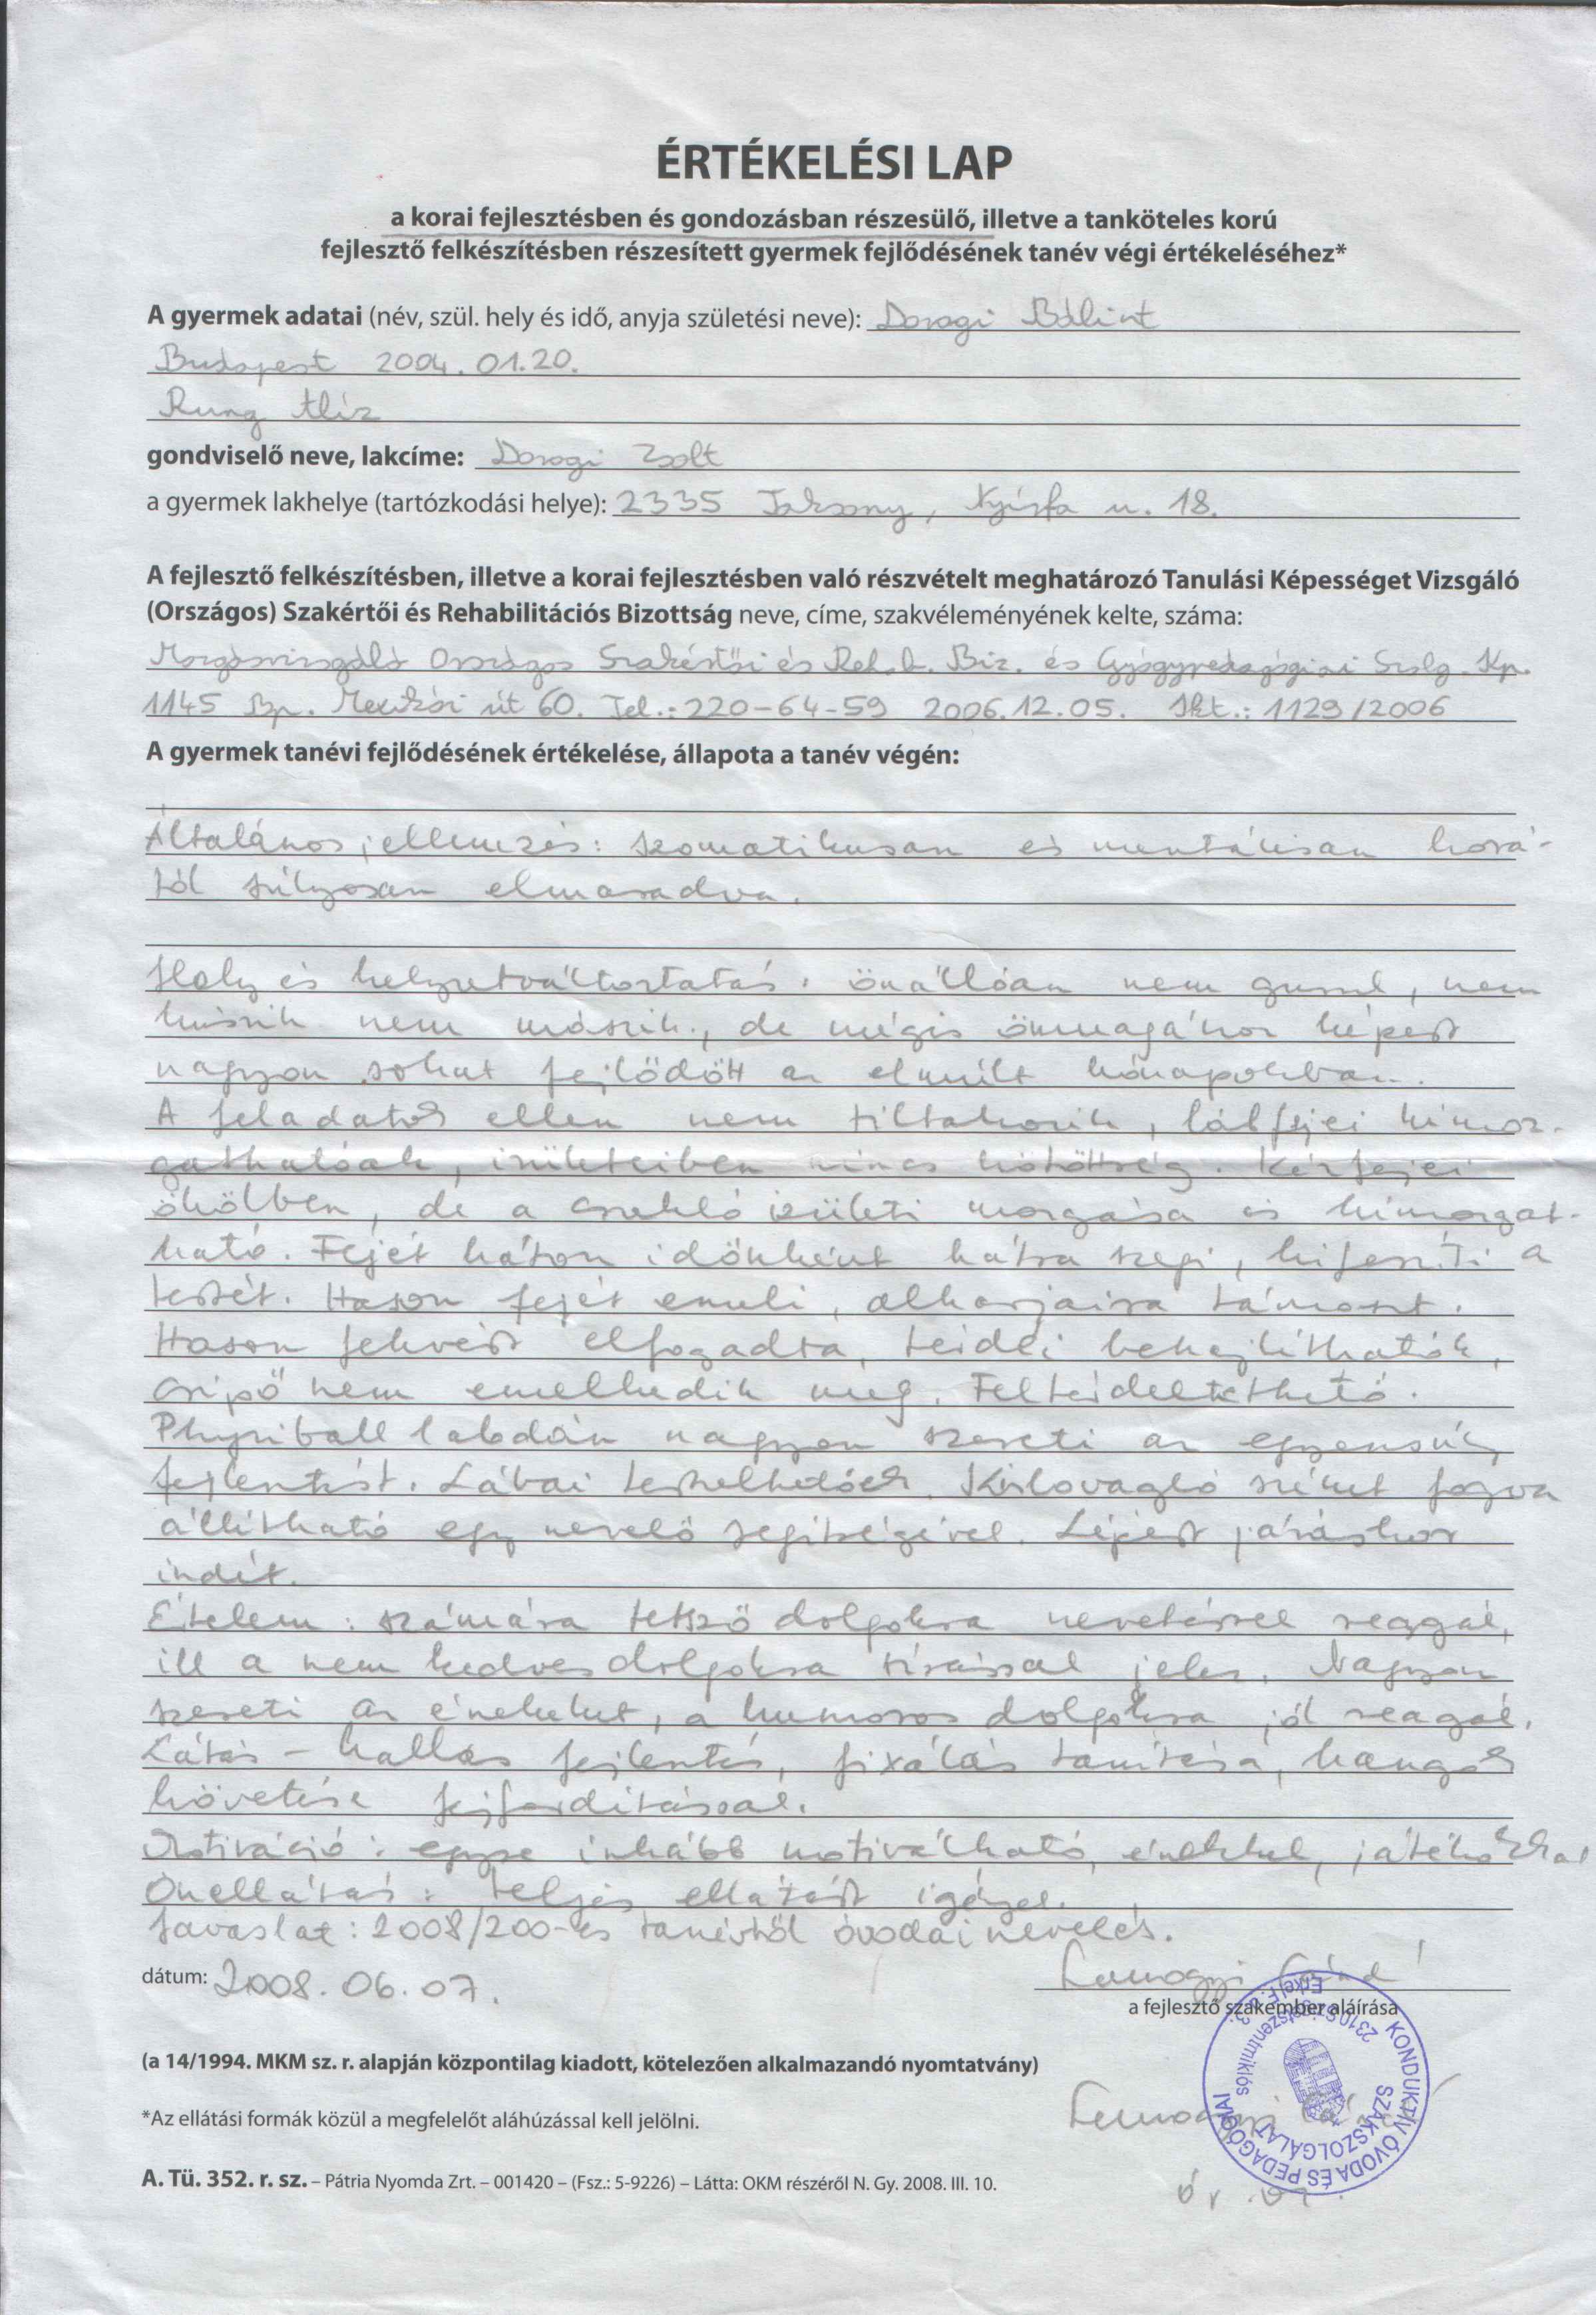 ÉRTÉKELÉSI LAP
a korai fejlesztésben és gondozásban részesülő, illetve a tanköteles korú
fejlesztő felkészítésben részesített gyermek fejlődésének tanév végi értékeléséhez*
A gyermek adatai (név, szül. hely és idő, anyja születési neve): Dorogi Bálint
Budapest 2004. 01. 20.
Rung Alíz
gondviselő neve, lakcíme: Dorogi Zsolt
a gyermek lakhelye (tartózkodási helye): 2335 Taksony, Nyírfa u. 18.
A fejlesztő felkészítésben, illetve a korai fejlesztésben való részvételt meghatározó Tanulási Képességet Vizsgáló
(Országos) Szakértői és Rehabilitációs Bizottság neve, címe, szakvéleményének kelte, száma:
Mozgásvizsgáló Országos Szakértői és Rehab. Biz. és Gyógypedagógiai Szolg. Kp.
1145 Bp. Mexikói út 60. Tel.: 220-64-59 2006.12.05. Ikt.: 1129/2006
A gyermek tanévi fejlődésének értékelése, állapota a tanév végén:
Általános jellemzés: szomatikusan és mentálisan korá-
tól súlyosan elmaradva.
Hely és helyzetváltoztatás: önállóan nem gurul, nem
kúszik nem mászik, de mégis önmagához képest
nagyon sokat fejlődött az elmúlt hónapokban.
A feladatok ellen nem tiltakozik, lábfejei kimoz-
gathatóak, izületeiben nincs kötöttség. Kézfejei
ökölben, de a csukló izületi mozgása is kimozgat-
ható. Fejét háton időnként hátra szegi, kifeszíti a
testét. Hason fejét emeli, alkarjaira támaszt.
Hason fekvést elfogadta, térdei behajlíthatók,
csipő nem emelkedik meg. Feltérdeltethető.
Physiball labdán nagyon szereti az egyensúly
fejlesztést. Lábai terhelhetőek. Kislovagló széket fogva
állítható egy nevelő segítségével. Lépést járáskor
indít.
Értelem: számára tetsző dolgokra nevetéssel reagál,
ill a nem kedves dolgokra sírással jelez. Nagyon
szereti az énekeket, a humoros dolgokra jól reagál.
Látás - hallás fejlesztés, fixálás tanítása, hangok
követése fejfordítással.
Motiváció: egyre inkább motiválható, énekkel, játékokkal
Önellátás: teljes ellátást igényel.
Javaslat: 2008/200-es tanévtől óvodai nevelés.
dátum: 2008. 06. 07.
a fejlesztő szakember aláírása
KONDUKTÍV ÓVODA ÉS PEDAGÓGIAI
SZAKSZOLGÁLAT
2310 Szigetszentmiklós
(a 14/1994. MKM sz. r. alapján központilag kiadott, kötelezően alkalmazandó nyomtatvány)
*Az ellátási formák közül a megfelelőt aláhúzással kell jelölni.
A. Tü. 352. r. sz. – Pátria Nyomda Zrt. – 001420 – (Fsz.: 5-9226) – Látta: OKM részéről N. Gy. 2008. III. 10.